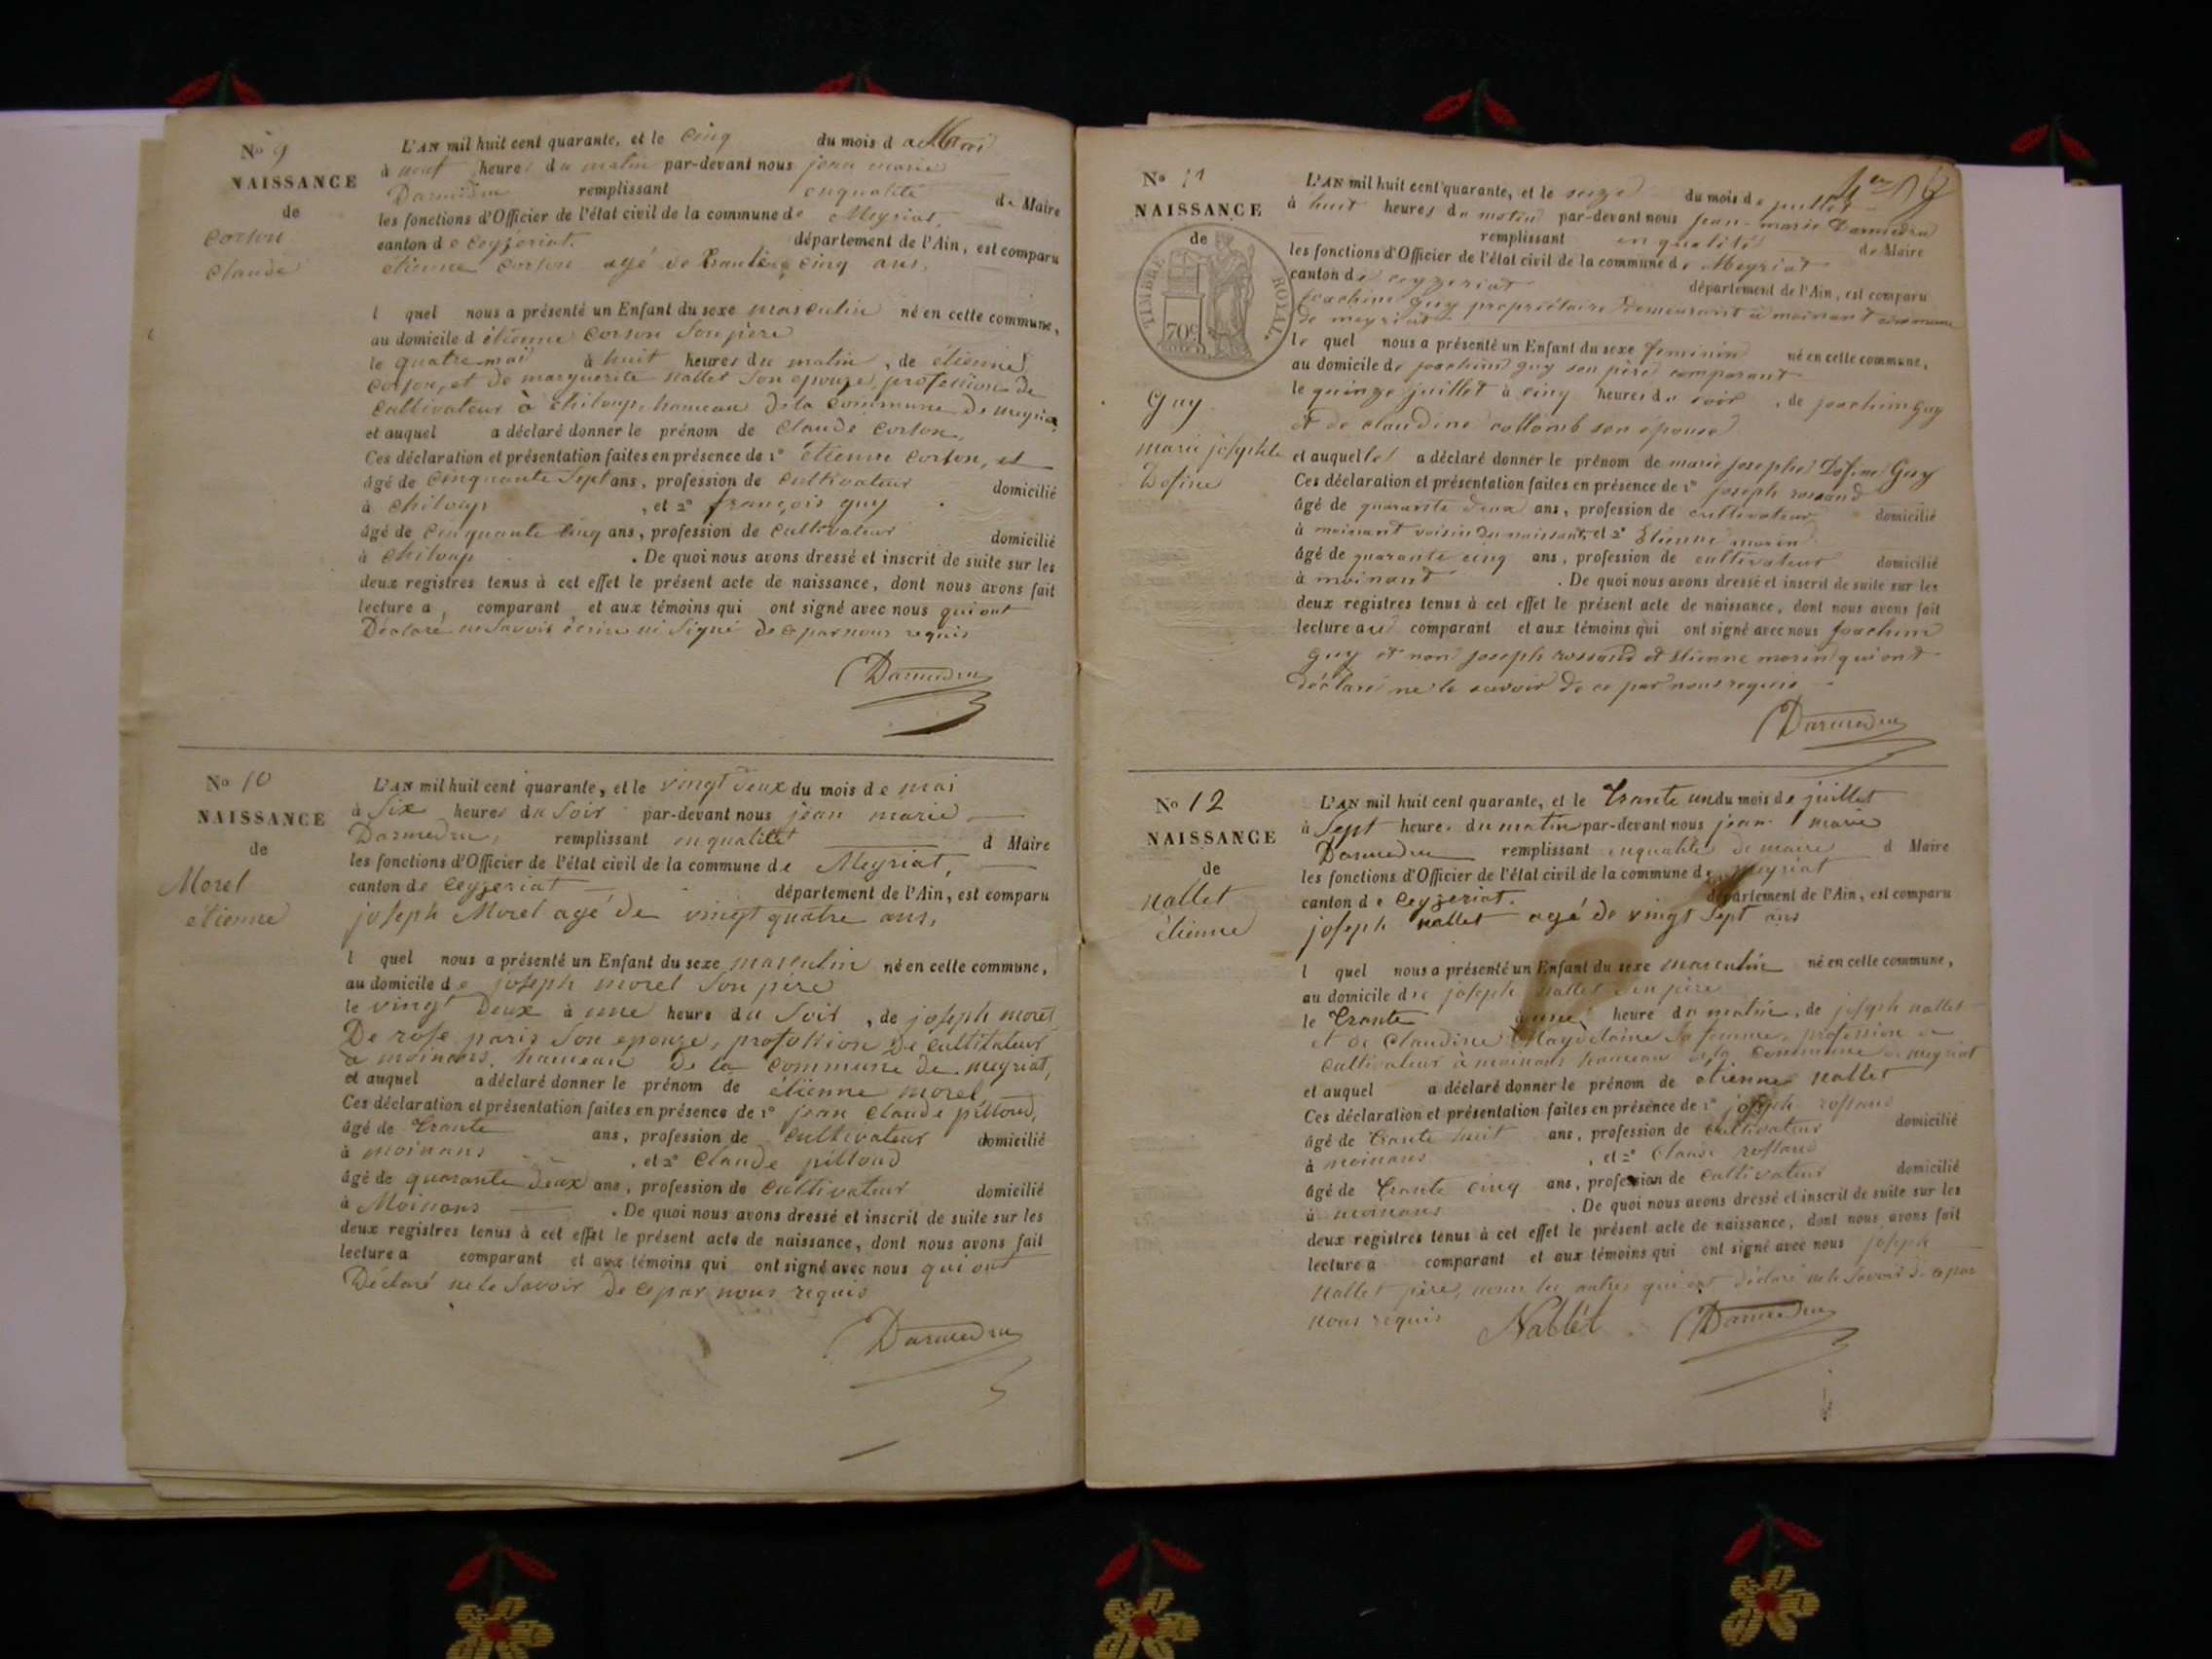 No 9
NAISSANCE
de
Corton
Claude
L'AN mil huit cent quarante, et le cinq du mois d
à neuf heures du matin par-devant nous jean marie
Darmedru remplissant enqualité de Maire
les fonctions d'Officier de l'état civil de la commune de Meyriat,
canton de Ceyzeriat. département de l'Ain, est comparu
étienne Corton agé de trante cinq ans,
l quel nous a présenté un Enfant du sexe masculin né en cette commune,
au domicile d étienne Corton Son père
le quatre mai à huit heures du matin, de étienne
Corton, et de marguerite Nallet Son epouze, profession de
Cultivateur à Chiloup, hameau de la Commune de meyriat
et auquel a déclaré donner le prénom de Claude Corton,
Ces déclaration et présentation faites en présence de 1° étienne Corton, et
âgé de Cinquante Sept ans, profession de Cultivateur domicilié
à Chiloup, et 2° françois guy
âgé de Cinquante Cinq ans, profession de Cultivateur domicilié
à Chiloup. De quoi nous avons dressé et inscrit de suite sur les
deux registres tenus à cet effet le présent acte de naissance, dont nous avons fait
lecture a, comparant et aux témoins qui ont signé avec nous qui ont
Déclaré ne Savoir écrire ni Signé de ce par nous requis
Darmedru
No 10
NAISSANCE
de
Morel
étienne
L'AN mil huit cent quarante, et le vingt deux du mois de mai
à Six heures du Soir par-devant nous jean marie
Darmedru, remplissant enqualité d Maire
les fonctions d'Officier de l'état civil de la commune de Meyriat,
canton de Ceyzeriat département de l'Ain, est comparu
joseph Morel agé de vingt quatre ans,
l quel nous a présenté un Enfant du sexe masculin né en cette commune,
au domicile de joseph morel Son père
le vingt Deux à une heure du Soir, de joseph morel
De rose paris Son epouze, profession De Cultivateur
a moinans, hameau De la Commune de meyriat,
et auquel a déclaré donner le prénom de étienne morel
Ces déclaration et présentation faites en présence de 1° jean Claude pilloud,
âgé de trante ans, profession de Cultivateur domicilié
à moinans, et 2° Claude pilloud
âgé de quarante deux ans, profession de Cultivateur domicilié
à Moinans. De quoi nous avons dressé et inscrit de suite sur les
deux registres tenus à cet effet le présent acte de naissance, dont nous avons fait
lecture a comparant et aux témoins qui ont signé avec nous qui ont
Déclaré ne le Savoir De ce par nous requis
Darmedru
No 11
NAISSANCE
de
TIMBRE ROYAL
70c
Guy
marie josephte
Dofine
L'AN mil huit cent quarante, et le seize du mois de juillet
à huit heures du matin par-devant nous jean-marie Darmedru
remplissant en qualité de Maire
les fonctions d'Officier de l'état civil de la commune de Meyriat
canton de Ceyzeriat département de l'Ain, est comparu
Joachim Guy propriétaire demeurant à moinant commune
de meyriat
le quel nous a présenté un Enfant du sexe feminin né en cette commune,
au domicile de joachim guy son père comparant
le quinze juillet à cinq heures du soir, de joachim Guy
et de claudine collomb son épouse
et auquelle a déclaré donner le prénom de marie josephe Dofine Guy
Ces déclaration et présentation faites en présence de 1° joseph rossand
âgé de quarante deux ans, profession de cultivateur domicilié
à moinant voisin du naissant, et 2° Etienne morin
âgé de quarante cinq ans, profession de cultivateur domicilié
à moinant. De quoi nous avons dressé et inscrit de suite sur les
deux registres tenus à cet effet le présent acte de naissance, dont nous avons fait
lecture au comparant et aux témoins qui ont signé avec nous Joachim
guy et non joseph rossand et Etienne morin qui ont
déclaré ne le savoir de ce par nous requis
Darmedru
No 12
NAISSANCE
de
Nallet
étienne
L'AN mil huit cent quarante, et le trante un du mois de juillet
à Sept heure du matin par-devant nous jean marie
Darmedru remplissant enqualité de maire d Maire
les fonctions d'Officier de l'état civil de la commune de meyriat
canton de Ceyzeriat. département de l'Ain, est comparu
joseph Nallet agé de vingt Sept ans
l quel nous a présenté un Enfant du sexe masculin né en cette commune,
au domicile de joseph Nallet Son père
le trante à une heure du matin, de joseph Nallet
et de Claudine Magdelaine Sa femme, profession de
Cultivateur à moinans hameau de la Commune de meyriat
et auquel a déclaré donner le prénom de étienne Nallet
Ces déclaration et présentation faites en présence de 1° joseph rossand
âgé de trante huit ans, profession de Cultivateur domicilié
à moinans, et 2° Claude rossand
âgé de trante cinq ans, profession de Cultivateur domicilié
à moinans. De quoi nous avons dressé et inscrit de suite sur les
deux registres tenus à cet effet le présent acte de naissance, dont nous avons fait
lecture a comparant et aux témoins qui ont signé avec nous joseph
Nallet père, non les autres qui ont déclaré ne le Savoir de ce par
nous requis
Nallét Darmedru